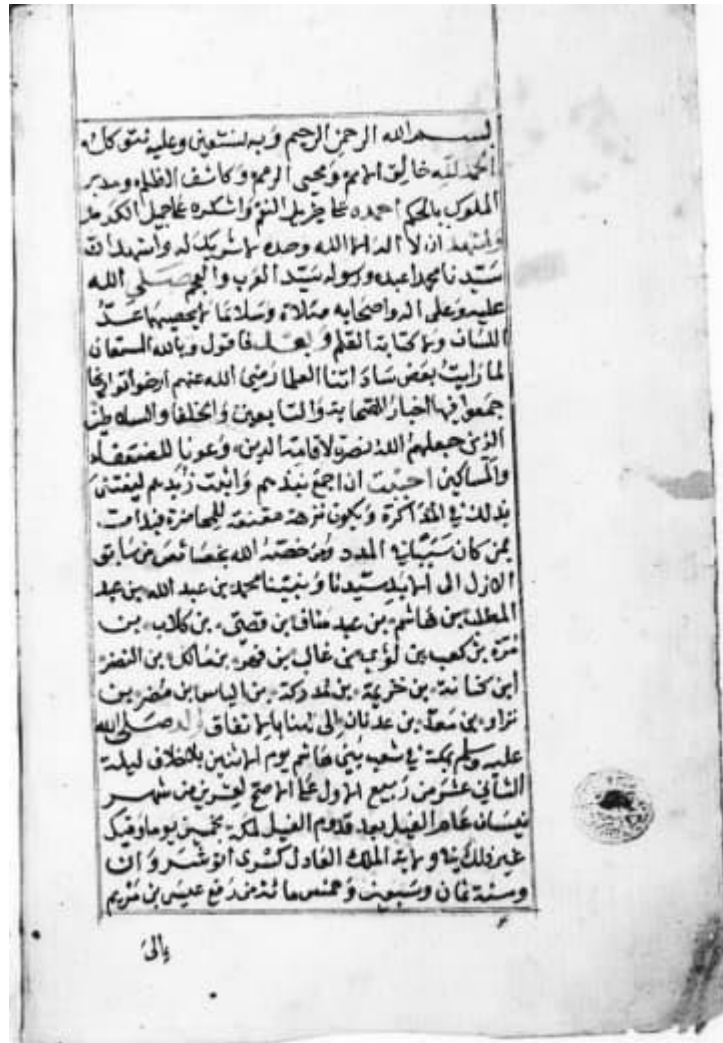 بسم الله الرحمن الرحيم وبه نستعين وعليه نتوكل
الحمد لله خالق الامم ومحيي الرمم وكاشف الظلم ومدبر
الملوك بالحكم احمده على جزيل النعم واشكره على جميل الكرم
واشهد ان لا اله الا الله وحده لا شريك له واشهد ان
سيدنا محمدا عبده ورسوله سيد العرب والعجم صلى الله
عليه وعلى اله واصحابه صلاة وسلاما لا يحصيها عد
اللسان ولا كتابة القلم وبعد فاقول وبالله المستعان
لما رايت بعض ساداتنا العلما رضي الله عنهم ارخوا تواريخا
جمعوا فيها اخبار الصحابة والتابعين والخلفا والسلاطين
الذين جعلهم الله نصرة لاقامة الدين وعونا للضعفاء
والمساكين احببت ان اجمع نبذهم واثبت زبدهم ليعتني
بذلك في المذاكرة ويكون نزهة مقنعة للمحاضرة فبدات
بمن كان سببا في المدد ومن خصه الله بخصائص من سابق
الازل الى الابد سيدنا ونبينا محمد بن عبد الله بن عبد
المطلب بن هاشم بن عبد مناف بن قصي بن كلاب بن
مرة بن كعب بن لؤي بن غالب بن فهر بن مالك بن النضر
ابن كنانة بن خزيمة بن مدركة بن الياس بن مضر بن
نزار بن معد بن عدنان الى هنا بالاتفاق ولد صلى الله
عليه وسلم بمكة في شعب بني هاشم يوم الاثنين بلا خلاف ليلة
الثاني عشر من ربيع الاول على الاصح لعشرين من شهر
نيسان عام الفيل بعد قدوم الفيل لمكة بخمسين يوما وقيل
غير ذلك ولاية الملك العادل كسرى انوشروان
وسنة ثمان وسبعين وخمس مائة من رفع عيسى بن مريم
الى